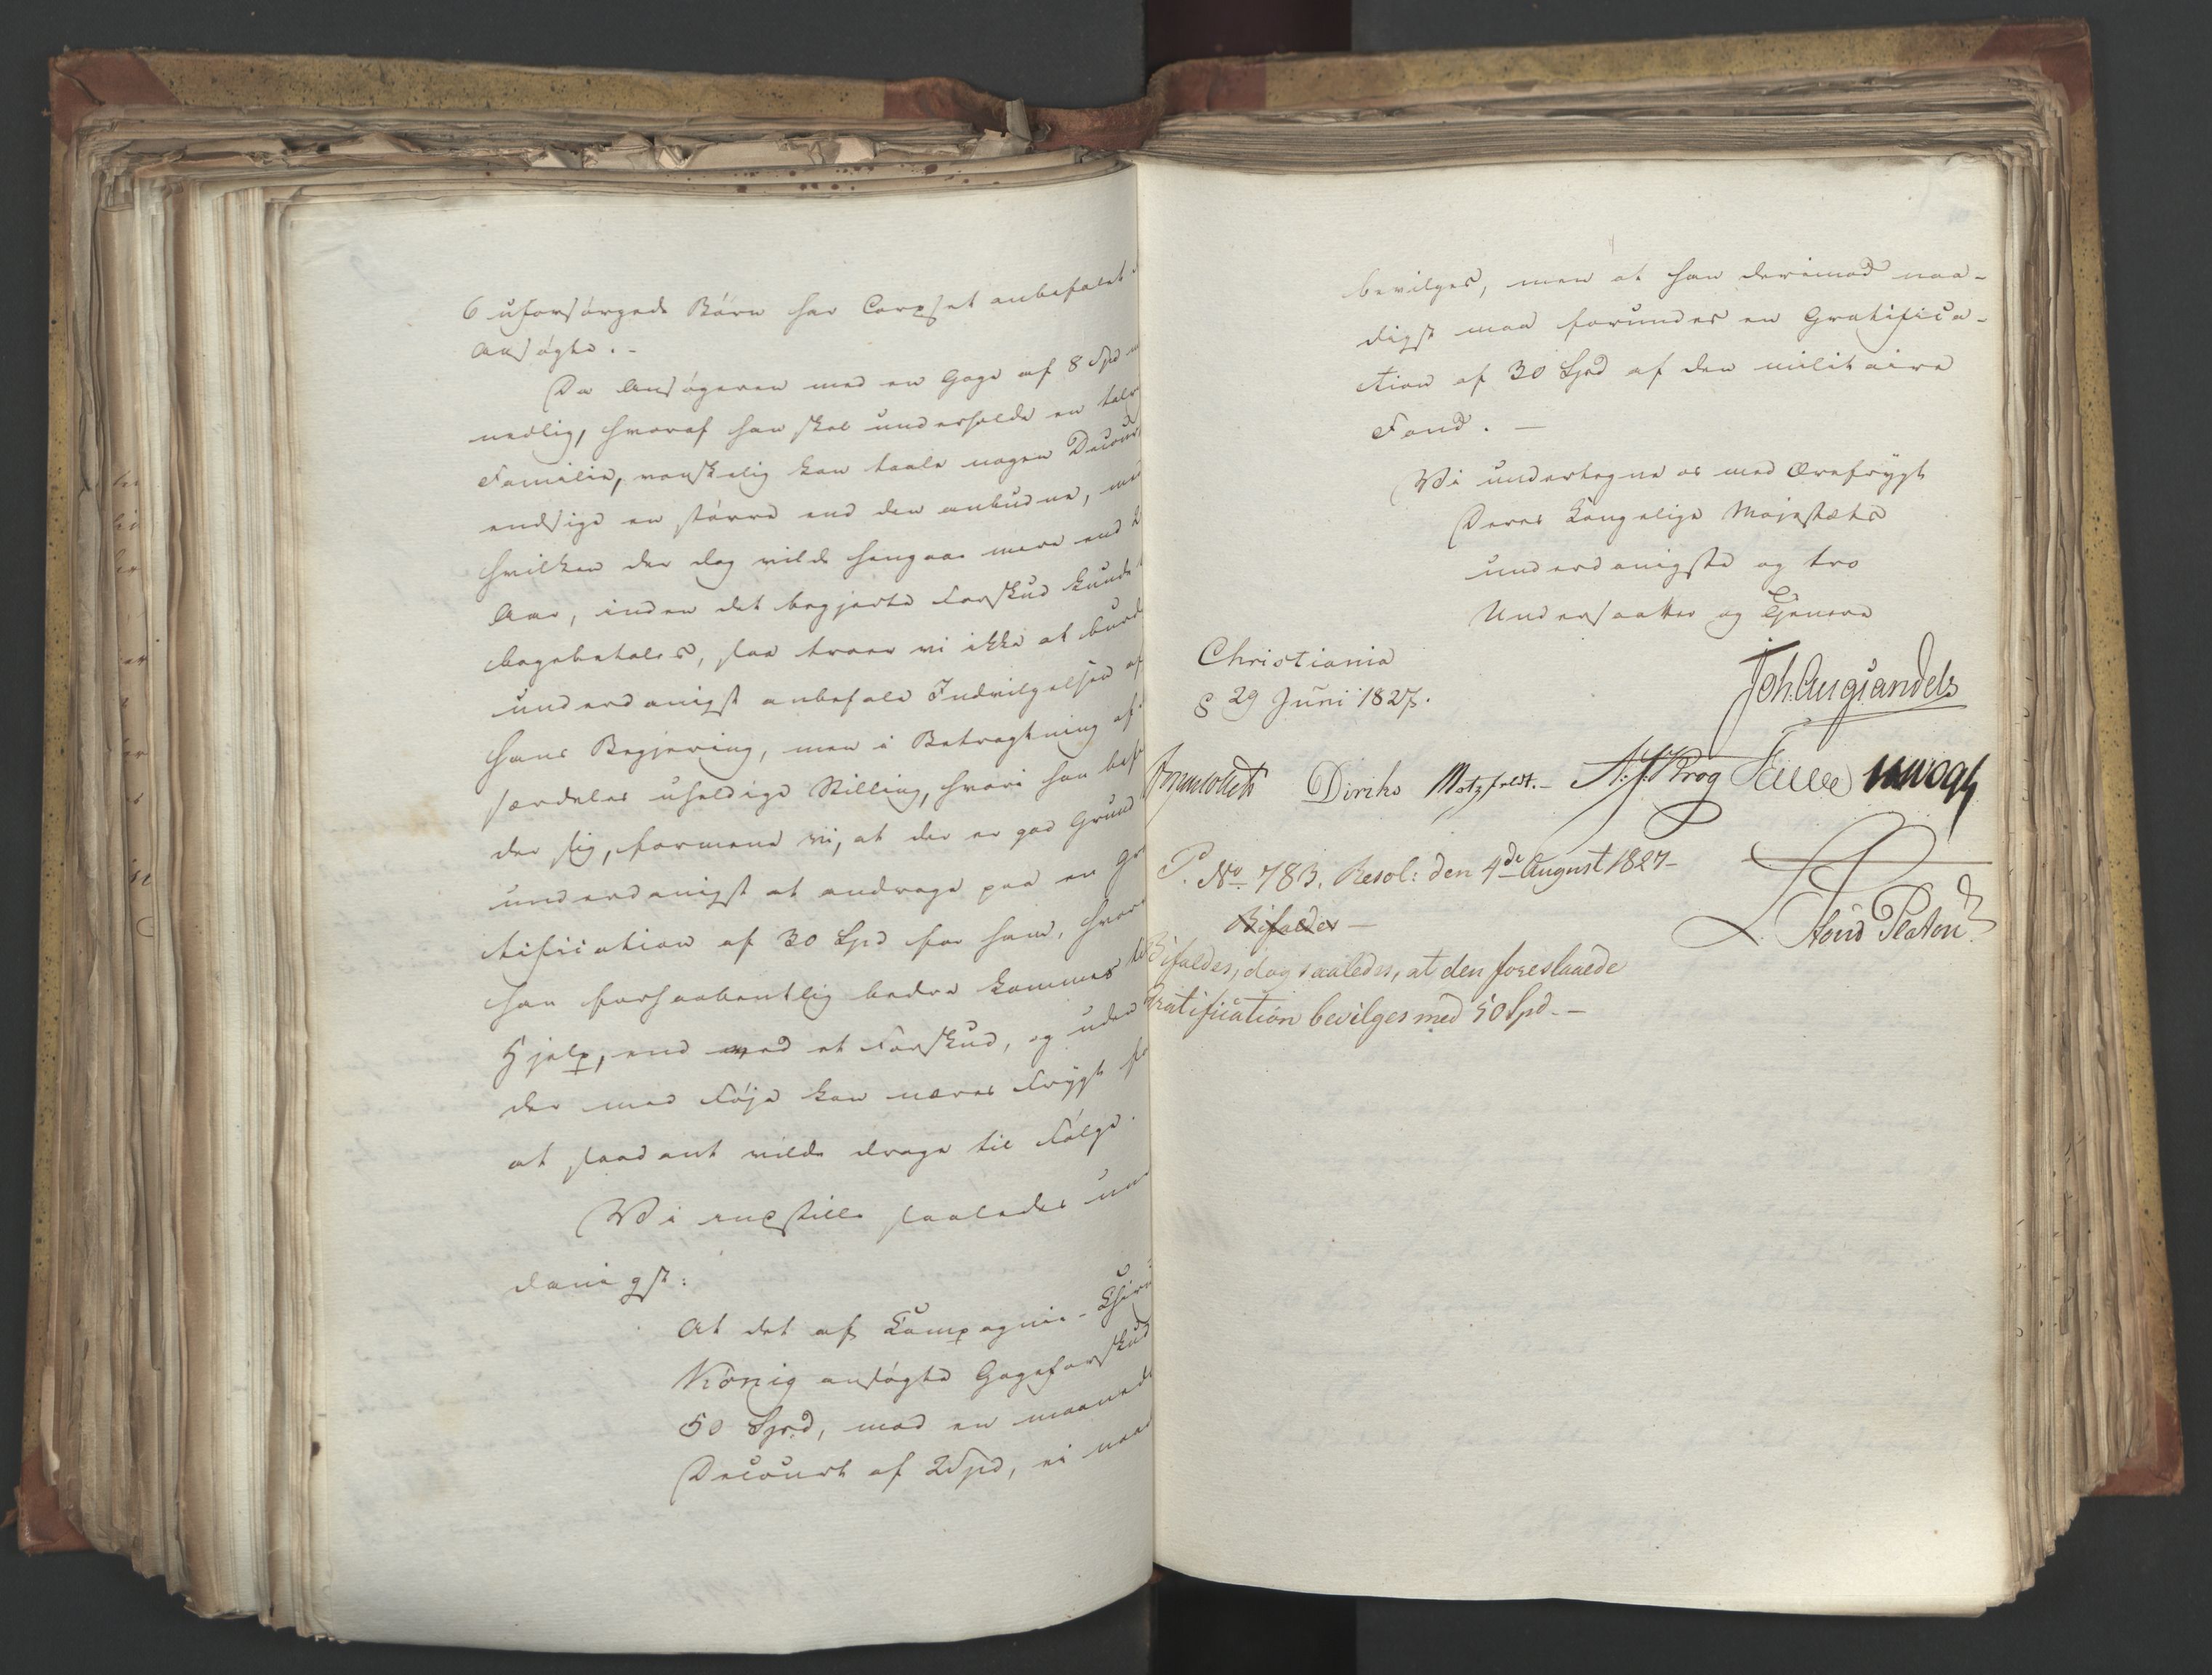 6 uforsørgede Børn har Corpset anbefalet
Ansøgte. -
Da Ansøgeren med en Gage af 8 Spd
nedlig, hvoraf han skal underholde en talr
Familie, vanskelig kan taale nogen Decour
endsige en større end den anbudne, med
hvilken der dog vilde hengaae mere end 2
Aar, inden det begjerte Forskud kunde
bagebetales, saa troer vi ikke at burde
underdanigst anbefale Indvilgelsen af
hans Begjering, men i Betragtning af
særdeles uheldige Stilling, hvori han befi
der sig, formene vi, at der er god Grund
underdanigst at andrage paa en Gra
tification af 30 Spd for ham, hvor
han forhaabentlig bedre kommes til
Hjelp, end med et Forskud, og uden
der med Føje kan næres Frygt fo
at saadant vilde drage til Følge.
Vi indstille saaledes un
danigst:
At det af Compagnie-Chiru
König ansøgte Gageforskud
50 Spd, mod en maaneds
Decourt af 2 Spd, ei naad
bevilges, men at han derimod naa-
digst maa forundes en Gratifica-
tion af 30 Spd af den militaire
Fond. -
Vi undertegne os med Ærefrygt
Deres Kongelige Majestæts
underdanigste og tro
Undersaatter og Tjenere
Christiania
d 29 Juni 1827.
Joh Aug Sandels
Diriks Motzfeldt. - A. J. Krog
P. No 783. Resol: den 4de August 1827 -
Bifaldes -
Bifaldes, dog saaledes, at den foreslaaede
Gratification bevilges med 50 Spd. -